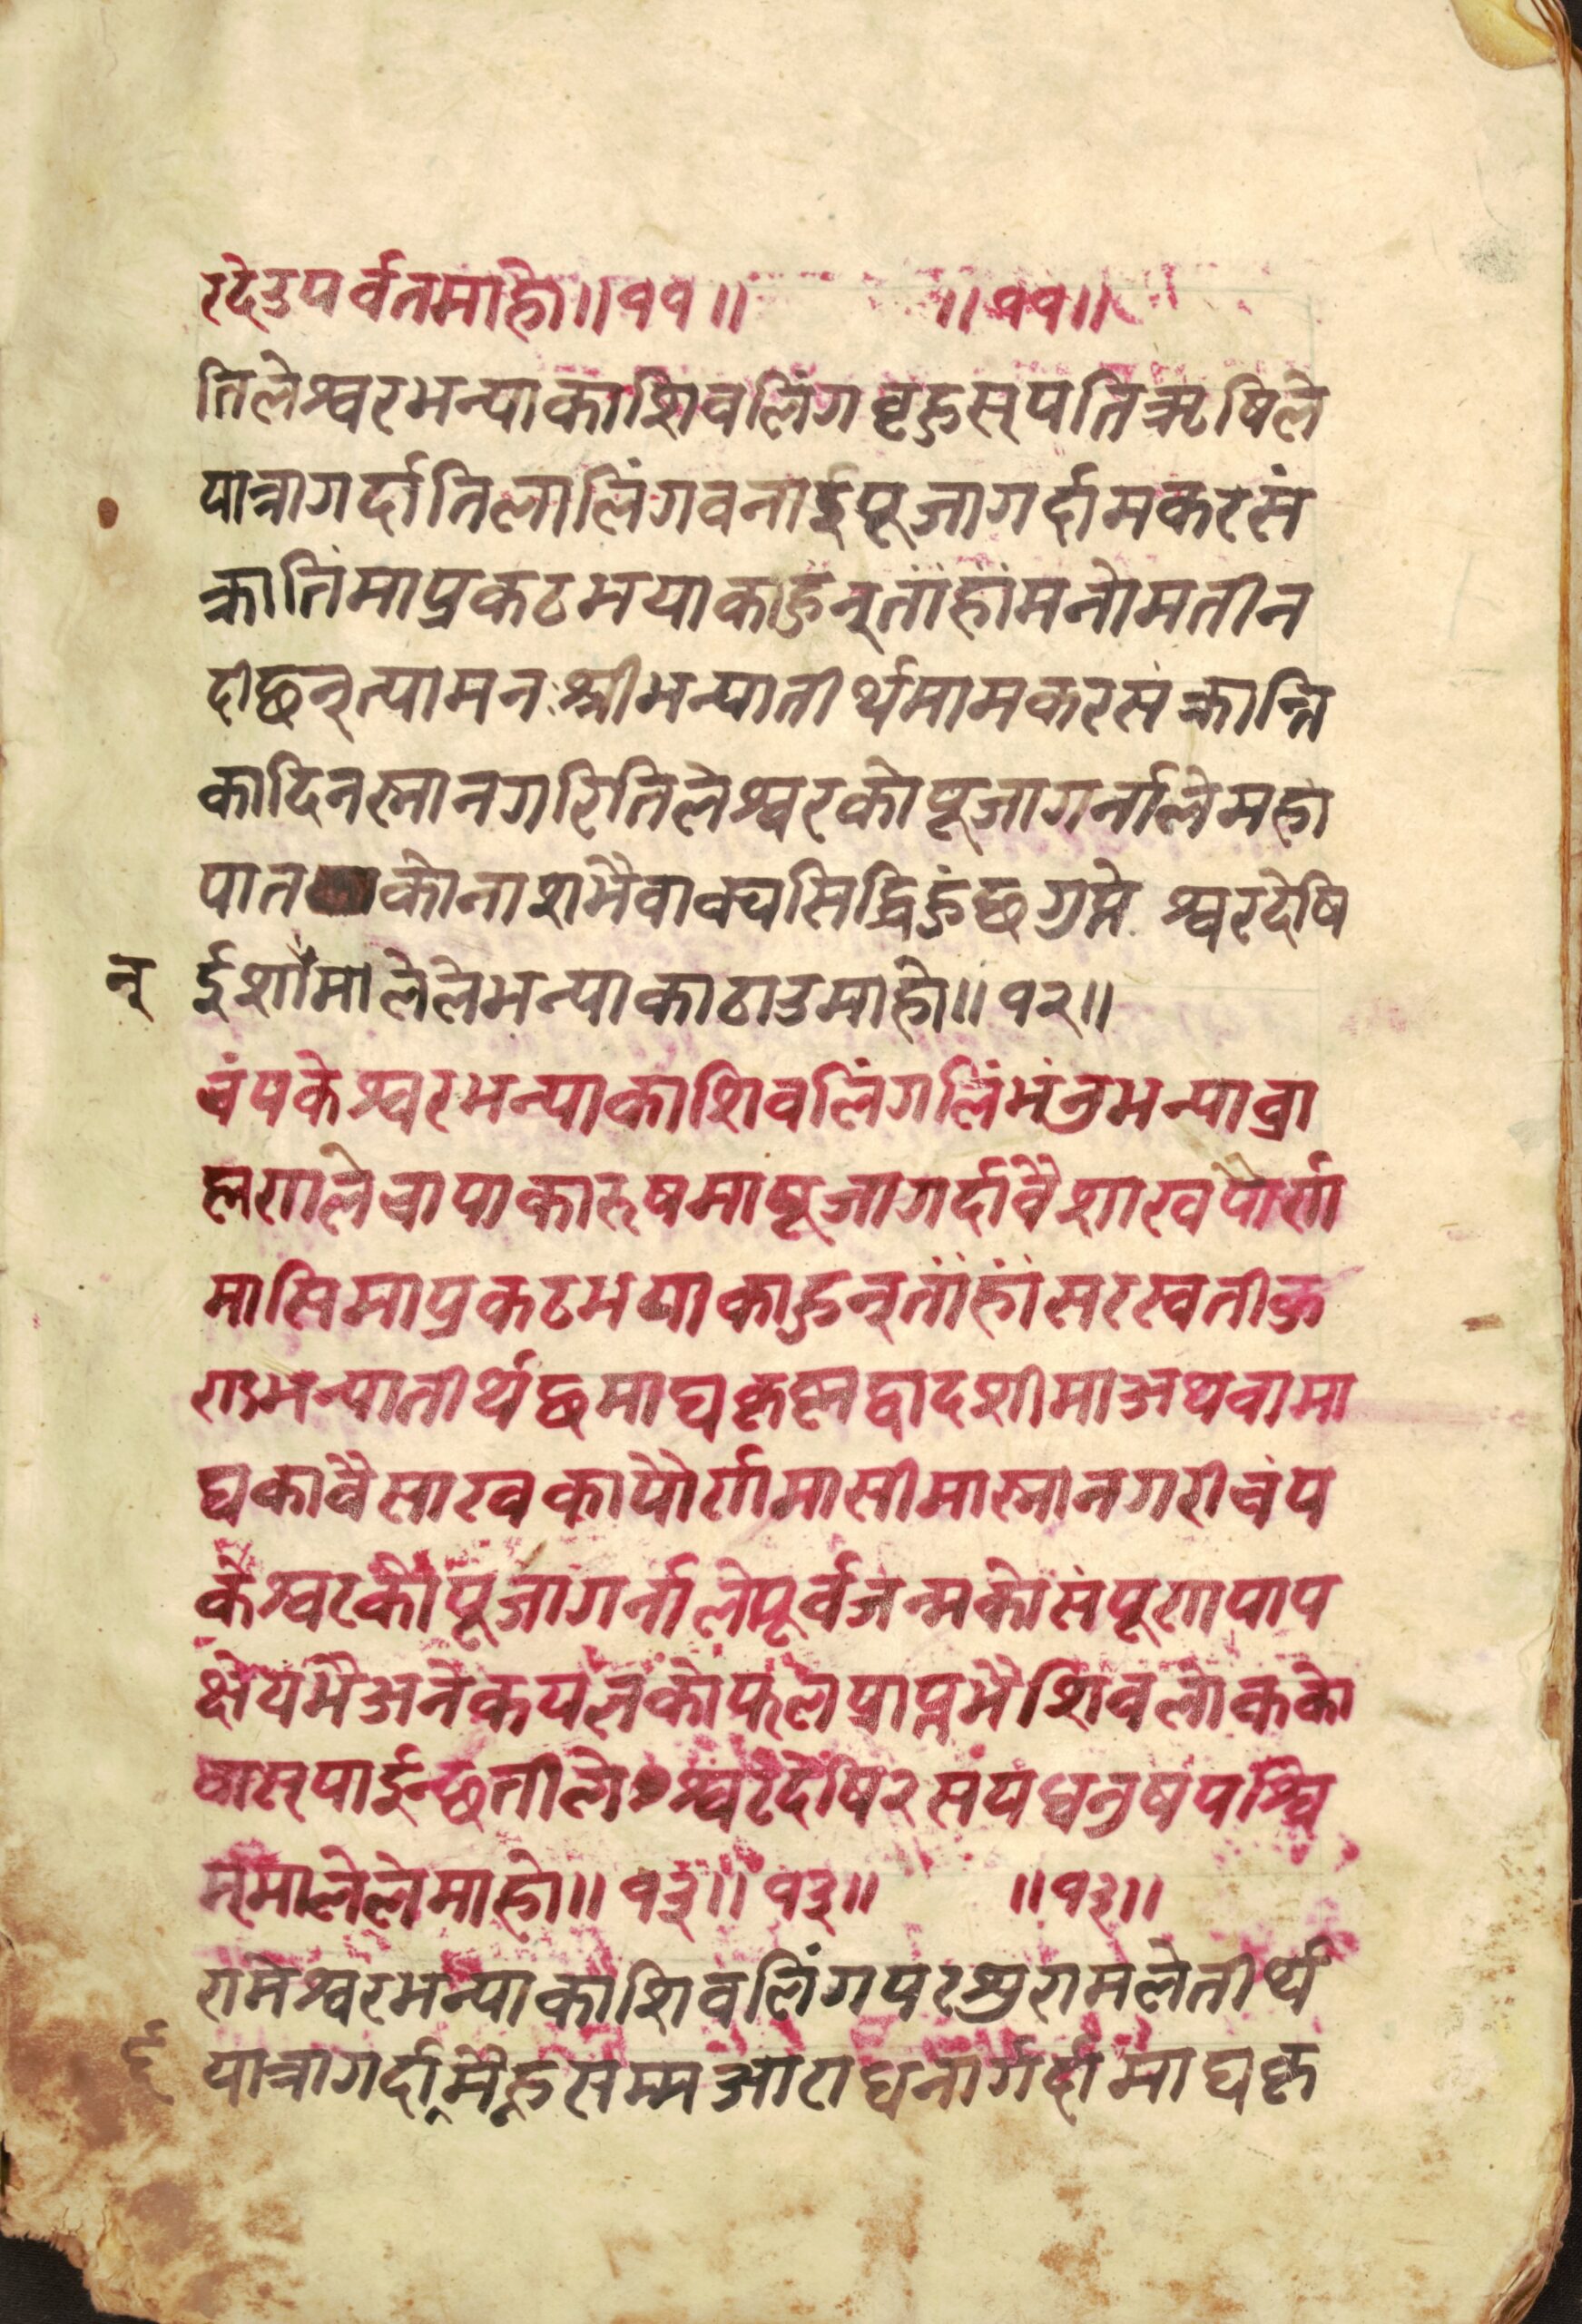 रदेउपर्वतमाहो॥११॥ ॥११॥
तिलेश्वरभन्याकाशिवलिंगवृहुस्पतिऋषिले
यात्रागर्दातिललिंगवनाईपूजागर्दामकरसं
क्रातिंमाप्रकटभयाकाहुन्तांहांमनोमतीन
दीछन्त्यामनःश्रीभन्यातीर्थमामकरसंक्रान्ति
कादिनस्नानगरितिलेश्वरकोपूजागर्नालेमहा
पातकोनाशभैवाक्यसिद्धिहुंछगुप्तेश्वरदेषि
न् ईशांमालेलेभन्याकाठाउमाहो॥१२॥
चंपकेश्वरभन्याकाशिवलिंगलिंभंतुभन्याव्रा
ह्मणलेचापाकारूषमापूजागर्दावैशाखपौर्णा
मासिमाप्रकटभयाकाहुन्तांहांसरस्वतीकु
ण्डभन्यातीर्थछमाघकृष्णद्वादशीमाअथवामा
घकावैसाखकापौर्णामासीमास्नानगरीचंप
केश्वरकोपूजागर्नालेपूर्वजन्मकोसंपूर्णपाप
क्षेयभैअनेकयज्ञकोफलप्राप्तभैशिवलोकको
वास्पाईन्छतीलेश्वरदेषि२सयधनुषपश्चि
म्मालेलेमाहो॥१३॥१३॥ ॥१३॥
रामेश्वरभन्याकाशिवलिंगपरशुरामलेतीर्थ
यात्रागर्दा्मैह्रसम्मआराधनागर्दामाघकृ